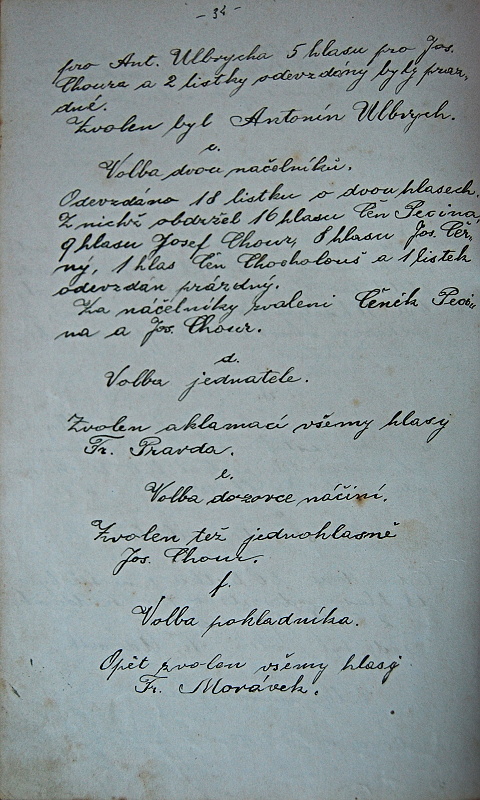 - 34 -
pro Ant. Ulbrycha 5 hlasu pro Jos.
Choura a 2 listky odevzdány byly práz-
dné.
Zvolen byl Antonín Ulbrych.
c.
Volba dvou načelníků.
Odevzdáno 18 listku o dvou hlasech.
Z nichž obdržel 16 hlasu Čěn Pecina,
9 hlasu Josef Chour, 8 hlasu Jos. Čer-
ný, 1 hlas Čěn Chocholouš a 1 listek
odevzdan prázdný.
Za náčelníky zvoleni Čeněk Peci-
na a Jos. Chour.
d.
Volba jednatele.
Zvolen aklamací všemy hlasy
Fr. Pravda.
e.
Volba dozorce náčiní.
Zvolen též jednohlasně
Jos. Chour.
f.
Volba pokladníka.
Opět zvolen všemy hlasy
Fr. Morávek.